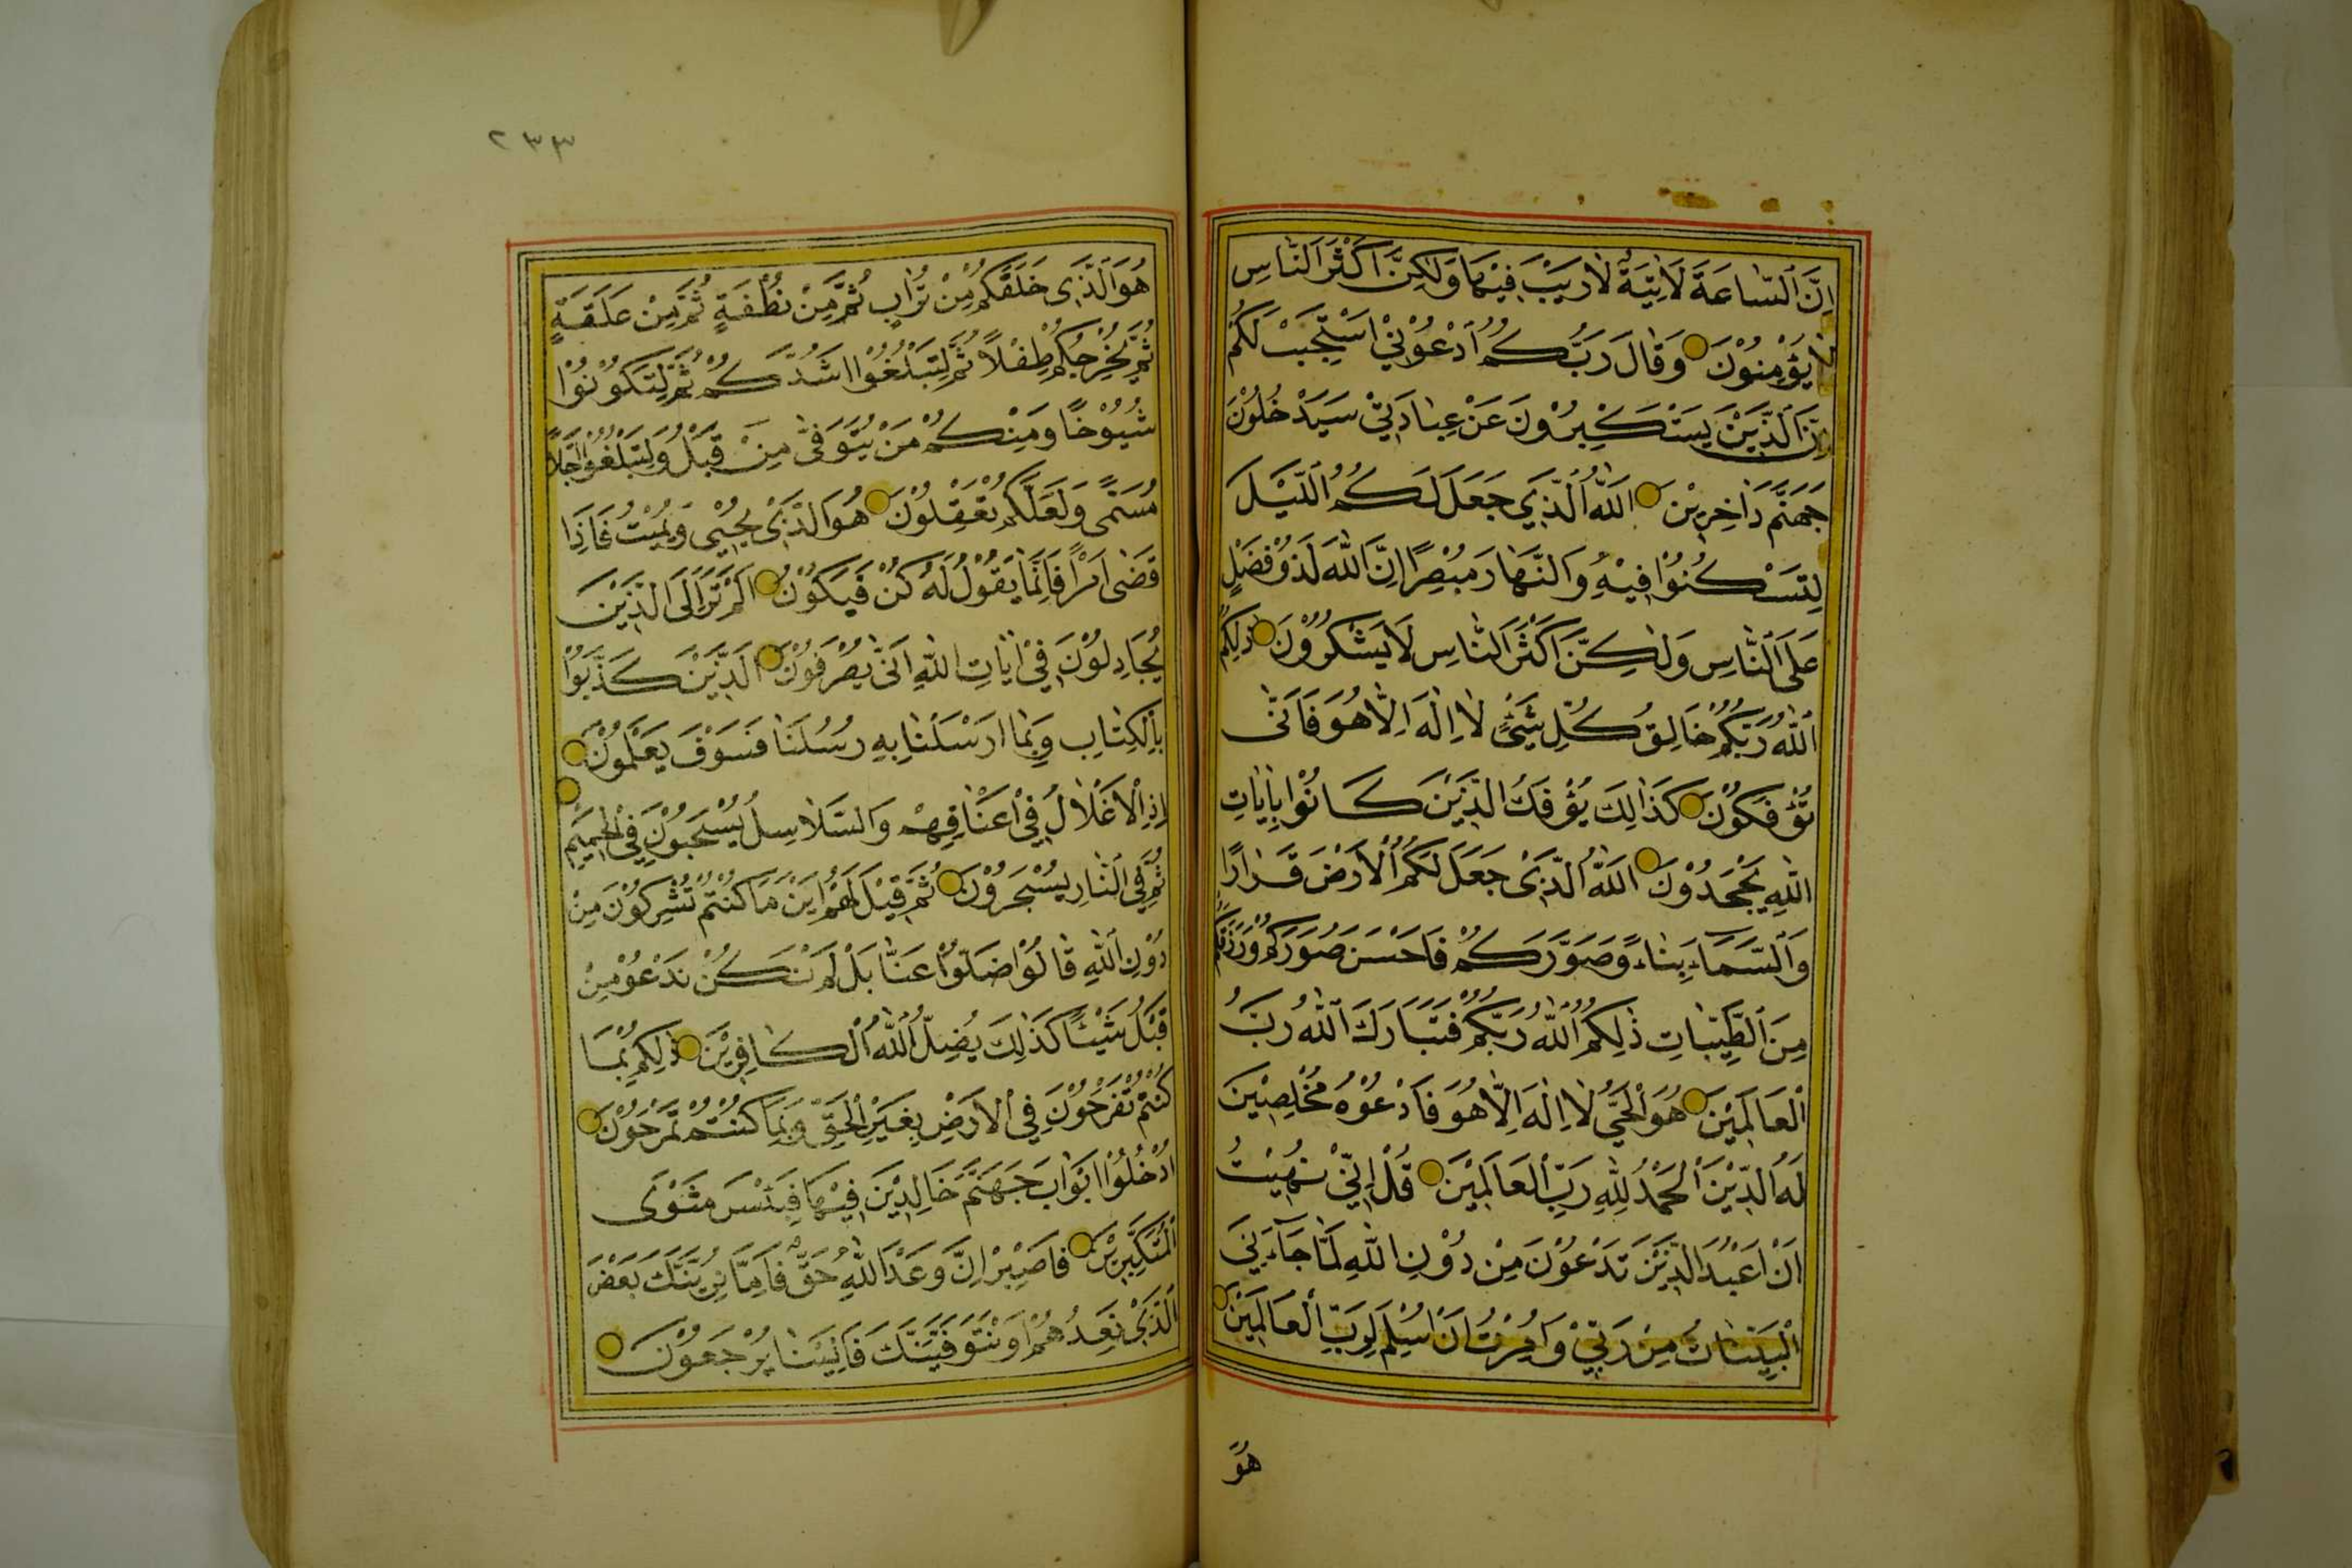 اِنَّ السَّاعَةَ لَاٰتِيَةٌ لَا رَيْبَ فِيْهَا وَلٰكِنَّ اَكْثَرَ النَّاسِ
لَا يُؤْمِنُوْنَ وَقَالَ رَبُّكُمُ ادْعُوْنِيْ اَسْتَجِبْ لَكُمْ
اِنَّ الَّذِيْنَ يَسْتَكْبِرُوْنَ عَنْ عِبَادَتِيْ سَيَدْخُلُوْنَ
جَهَنَّمَ دَاخِرِيْنَ اَللّٰهُ الَّذِيْ جَعَلَ لَكُمُ الَّيْلَ
لِتَسْكُنُوْا فِيْهِ وَالنَّهَارَ مُبْصِرًا اِنَّ اللّٰهَ لَذُوْ فَضْلٍ
عَلَى النَّاسِ وَلٰكِنَّ اَكْثَرَ النَّاسِ لَا يَشْكُرُوْنَ ذٰلِكُمُ
اللّٰهُ رَبُّكُمْ خَالِقُ كُلِّ شَيْءٍ لَا اِلٰهَ اِلَّا هُوَ فَاَنّٰى
تُؤْفَكُوْنَ كَذٰلِكَ يُؤْفَكُ الَّذِيْنَ كَانُوْا بِاٰيَاتِ
اللّٰهِ يَجْحَدُوْنَ اَللّٰهُ الَّذِيْ جَعَلَ لَكُمُ الْاَرْضَ قَرَارًا
وَالسَّمَاءَ بِنَاءً وَصَوَّرَكُمْ فَاَحْسَنَ صُوَرَكُمْ وَرَزَقَكُمْ
مِنَ الطَّيِّبَاتِ ذٰلِكُمُ اللّٰهُ رَبُّكُمْ فَتَبَارَكَ اللّٰهُ رَبُّ
الْعَالَمِيْنَ هُوَ الْحَيُّ لَا اِلٰهَ اِلَّا هُوَ فَادْعُوْهُ مُخْلِصِيْنَ
لَهُ الدِّيْنَ اَلْحَمْدُ لِلّٰهِ رَبِّ الْعَالَمِيْنَ قُلْ اِنِّيْ نُهِيْتُ
اَنْ اَعْبُدَ الَّذِيْنَ تَدْعُوْنَ مِنْ دُوْنِ اللّٰهِ لَمَّا جَآءَنِيَ
الْبَيِّنَاتُ مِنْ رَبِّيْ وَاُمِرْتُ اَنْ اُسْلِمَ لِرَبِّ الْعَالَمِيْنَ
هُوَ
٢٣٣
هُوَ الَّذِيْ خَلَقَكُمْ مِنْ تُرَابٍ ثُمَّ مِنْ نُطْفَةٍ ثُمَّ مِنْ عَلَقَةٍ
ثُمَّ يُخْرِجُكُمْ طِفْلًا ثُمَّ لِتَبْلُغُوْا اَشُدَّكُمْ ثُمَّ لِتَكُوْنُوْا
شُيُوْخًا وَمِنْكُمْ مَنْ يُتَوَفّٰى مِنْ قَبْلُ وَلِتَبْلُغُوْا اَجَلًا
مُسَمًّى وَلَعَلَّكُمْ تَعْقِلُوْنَ هُوَ الَّذِيْ يُحْيِيْ وَيُمِيْتُ فَاِذَا
قَضٰى اَمْرًا فَاِنَّمَا يَقُوْلُ لَهُ كُنْ فَيَكُوْنُ اَلَمْ تَرَ اِلَى الَّذِيْنَ
يُجَادِلُوْنَ فِيْ اٰيَاتِ اللّٰهِ اَنّٰى يُصْرَفُوْنَ اَلَّذِيْنَ كَذَّبُوْا
بِالْكِتَابِ وَبِمَا اَرْسَلْنَا بِهِ رُسُلَنَا فَسَوْفَ يَعْلَمُوْنَ
اِذِ الْاَغْلَالُ فِيْ اَعْنَاقِهِمْ وَالسَّلَاسِلُ يُسْحَبُوْنَ فِي الْحَمِيْمِ
ثُمَّ فِي النَّارِ يُسْجَرُوْنَ ثُمَّ قِيْلَ لَهُمْ اَيْنَ مَا كُنْتُمْ تُشْرِكُوْنَ مِنْ
دُوْنِ اللّٰهِ قَالُوْا ضَلُّوْا عَنَّا بَلْ لَمْ نَكُنْ نَدْعُوْ مِنْ
قَبْلُ شَيْئًا كَذٰلِكَ يُضِلُّ اللّٰهُ الْكَافِرِيْنَ ذٰلِكُمْ بِمَا
كُنْتُمْ تَفْرَحُوْنَ فِي الْاَرْضِ بِغَيْرِ الْحَقِّ وَبِمَا كُنْتُمْ تَمْرَحُوْنَ
اُدْخُلُوْا اَبْوَابَ جَهَنَّمَ خَالِدِيْنَ فِيْهَا فَبِئْسَ مَثْوَى
الْمُتَكَبِّرِيْنَ فَاصْبِرْ اِنَّ وَعْدَ اللّٰهِ حَقٌّ فَاِمَّا نُرِيَنَّكَ بَعْضَ
الَّذِيْ نَعِدُهُمْ اَوْ نَتَوَفَّيَنَّكَ فَاِلَيْنَا يُرْجَعُوْنَ